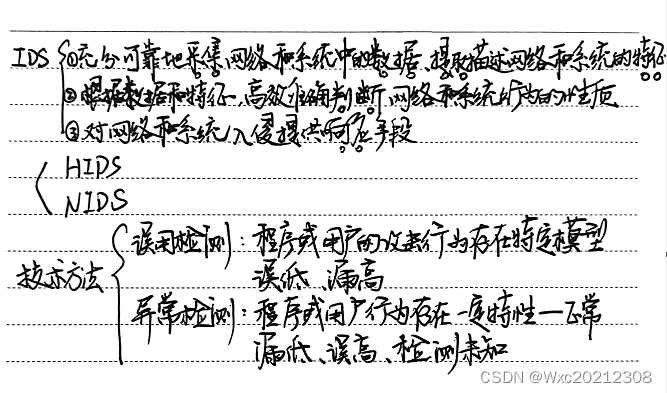 IDS ①充分可靠地采集网络和系统中的数据、提取描述网络和系统的特征
②根据数据和特征,高效准确判断网络和系统行为的性质
③对网络和系统入侵提供响应手段
HIDS
NIDS
技术方法
误用检测:程序或用户的攻击行为存在特定模型
误低、漏高
异常检测:程序或用户行为存在一定特性—正常
漏低、误高、检测未知
CSDN @Wxc20212308